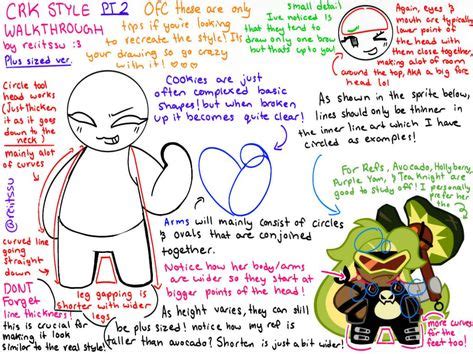 CRK STYLE PT.2
WALKTHROUGH
by reiitssu :3
Plus sized ver.
OFC these are only
tips if you're looking
to recreate the style! Its
your drawing so go crazy
with it!
small detail
Ive noticed is
that they tend to
draw only one brow
but thats up to you!
Again, eyes &
mouth are typically
lower point of
the head with
them close together,
making alot of room
around the top, AKA a big for
head lol
Circle too
head works
(Just thicken
it as it goes
down to the
neck)
mainly alot
of curves
@reiitssu
curved line
going
straight
down
COOKIES are just
often complexed basic
shapes! but when broken
up it becomes quite clear!
As shown in the sprite below,
lines should only be thinner in
the inner line art which I have
circled as examples!
For Refs, Avocado, Hollyberry,
Purple Yam, & Tea Knight are
good to study off! I personally
prefer her the
Arms will mainly consist of circles
& ovals that are conjoined
together.
Notice how her body/arms
are wider so they start at
bigger points of the head!
leg gapping is
Shorter with wider
legs
DONT
Forget
line thickness!
this is crucial for
making it look
similar to the real style!
As height varies, they can still
be plus sized! notice how my ref is
taller than avocado? Shorten is just a bit wider!
more curves
for the
feet too!